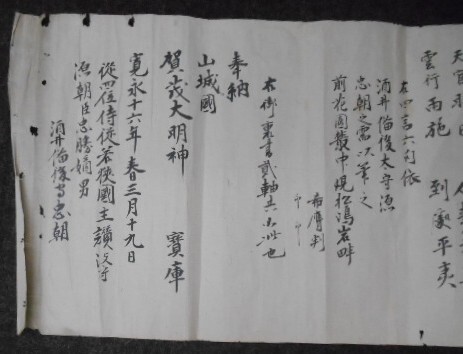 雲行雨施 到 平
右四言六句依
酒井備後太守源
忠朝之需以筆之
前花園叢中現松 岩畔
判
印 印
右御裏書貳軸共 如此也
奉納
山城國
賀茂大明神 寳庫
寛永十六年春三月十九日
從四位侍従若狭國主讃岐守
源朝臣忠勝嫡男
酒井備後守忠朝